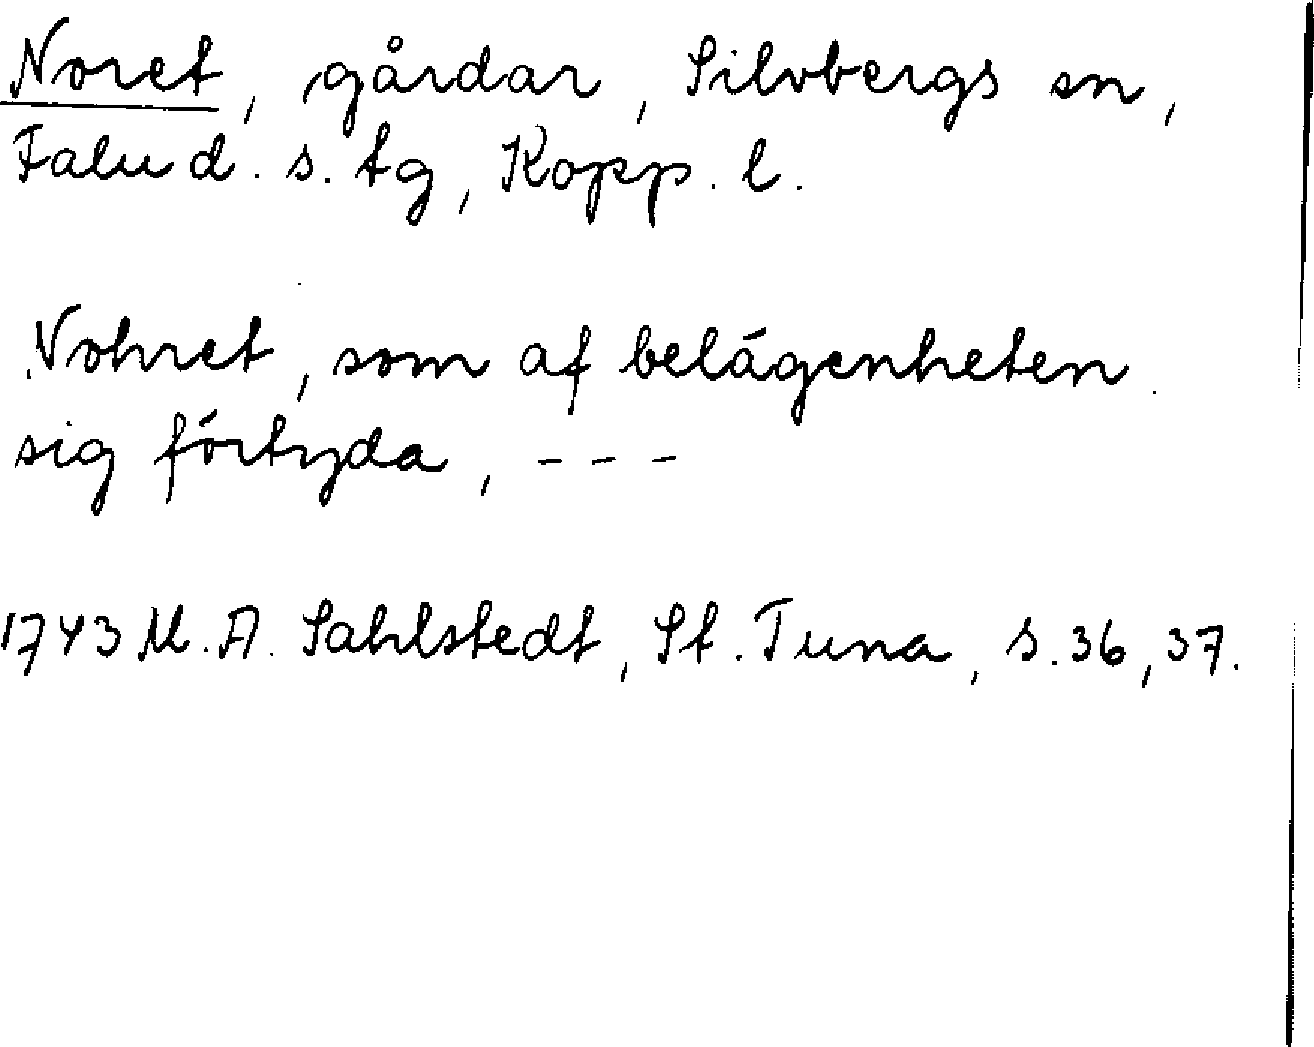 Noret, gårdar, Silvbergs sn,
Falu d. s. tg, Kopp. l.
Nohret, som af belágenheten
sig fórtyda, ---
1743 M. A. Sahlstedt, St. Tuna, s. 36, 37.